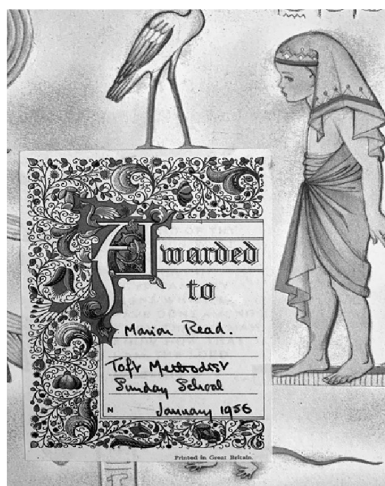 Awarded
to
Marion Read.
Toft Methodist
Sunday School
N January 1956
Printed in Great Britain.